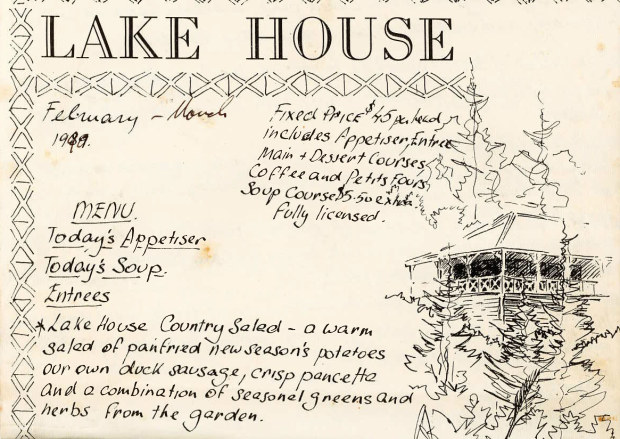 LAKE HOUSE
February - March
1989.
Fixed Price $45 per head
includes Appetiser, Entree
Main + Dessert Courses
Coffee and Petits Fours
Soup Course $5.50 extra.
Fully licensed.
MENU.
Today's Appetiser
Today's Soup.
Entrees
*Lake House Country Salad - a warm
salad of panfried new season's potatoes
our own duck sausage, crisp pancetta
and a combination of seasonal greens and
herbs from the garden.